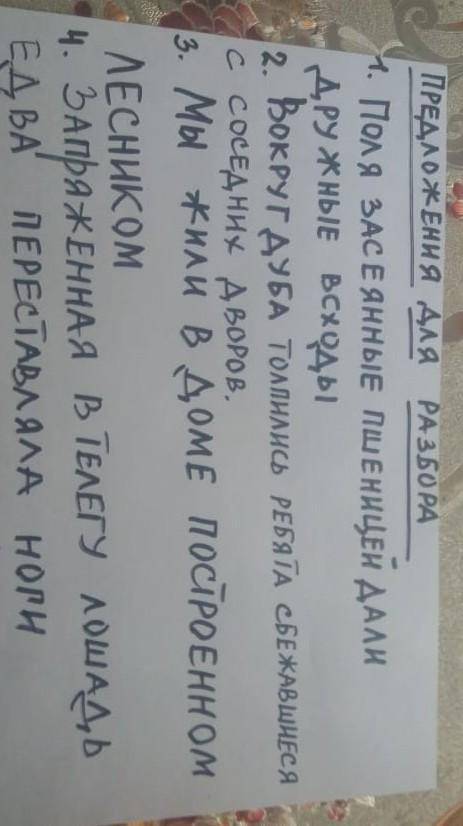 ПРЕДЛОЖЕНИЯ ДЛЯ РАЗБОРА
1. ПОЛЯ ЗАСЕЯННЫЕ ПШЕНИЦЕЙ ДАЛИ
ДРУЖНЫЕ ВСХОДЫ
2. ВОКРУГ ДУБА ТОЛПИЛИСЬ РЕБЯТА СБЕЖАВШИЕСЯ
С СОСЕДНИХ ДВОРОВ.
3. МЫ ЖИЛИ В ДОМЕ ПОСТРОЕННОМ
ЛЕСНИКОМ
4. ЗАПРЯЖЕННАЯ В ТЕЛЕГУ ЛОШАДЬ
ЕДВА ПЕРЕСТАВЛЯЛА НОГИ